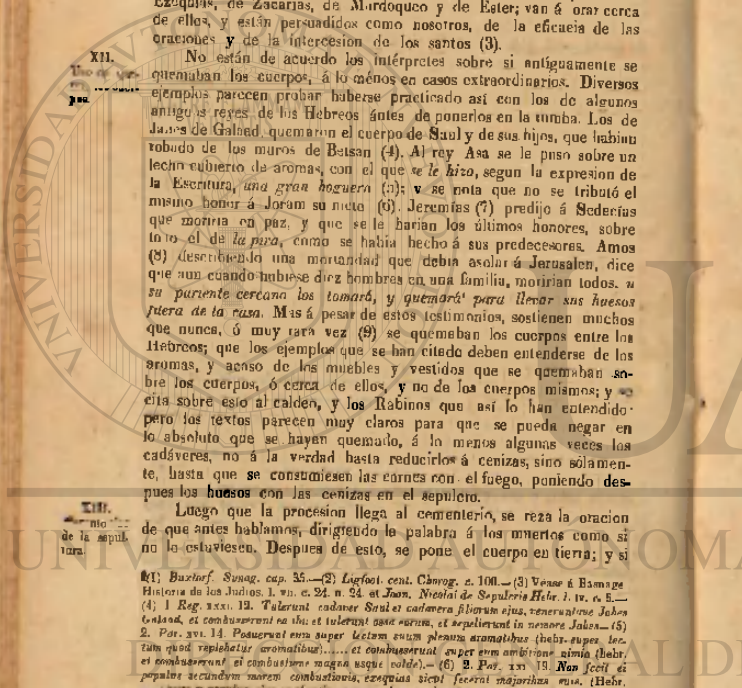 Ezequías, de Zacarías, de Mardoqueo y de Ester; van á orar cerca
de ellos, y están persuadidos como nosotros, de la eficacia de las
oraciones y de la intercesion de los santos (3).
XII.
No están de acuerdo los intérpretes sobre si antiguamente se
quemaban los cuerpos, á lo ménos en casos extraordinarios. Diversos
ejemplos parecen probar haberse practicado así con los de algunos
antiguos reyes de los Hebreos ántes de ponerlos en la tumba. Los de
Jabes de Galaad, quemaron el cuerpo de Saul y de sus hijos, que habian
robado de los muros de Betsan (4). Al rey Asa se le puso sobre un
lecho cubierto de aromas, con el que se le hizo, segun la expresion de
la Escritura, una gran hoguera (5); y se nota que no se tributó el
mismo honor á Joram su nieto (6). Jeremías (7) predijo á Sedecías
que moriria en paz, y que se le harian los últimos honores, sobre
todo el de la pira, como se habia hecho á sus predecesores. Amos
(8) describiendo una mortandad que debia asolar á Jerusalen, dice
que aun cuando hubiese diez hombres en una familia, moririan todos, y
su pariente cercano los tomará, y quemará para llevar sus huesos
fuera de la casa. Mas á pesar de estos testimonios, sostienen muchos
que nunca, ó muy rara vez (9) se quemaban los cuerpos entre los
Hebreos; que los ejemplos que se han citado deben entenderse de los
aromas, y acaso de los muebles y vestidos que se quemaban so-
bre los cuerpos, ó cerca de ellos, y no de los cuerpos mismos; y se
cita sobre esto al caldeo, y los Rabinos que así lo han entendido
pero los textos parecen muy claros para que se pueda negar en
lo absoluto que se hayan quemado, á lo menos algunas veces los
cadáveres, no á la verdad hasta reducirlos á cenizas, sino sólamen-
te, hasta que se consumiesen las carnes con el fuego, poniendo des-
pues los huesos con las cenizas en el sepulcro.
XIII.
de la sepul-
tura.
Luego que la procesion llega al cementerio, se reza la oracion
de que antes hablamos, dirigiendo la palabra á los muertos como si
no lo estuviesen. Despues de esto, se pone el cuerpo en tierra; y si
(1) Buxtorf. Synag. cap. 35.—(2) Ligfoot. cent. Chorog. c. 100.—(3) Véase á Basnage
Historia de los Judios. l. vii. c. 24. n. 24. et Joan. Nicolai de Sepulcris Hebr. l. iv. c. 5.—
(4) 1 Reg. xxxi. 12. Tulerunt cadaver Saul et cadavera filiorum ejus, veneruntque Jabes
Galaad, et combusserunt ea ibi; et tulerunt ossa eorum, et sepelierunt in nemore Jabes.—(5)
2. Par. xvi. 14. Posuerunt eum super lectum suum plenum aromatibus (hebr. super lec-
tum quod replebatur aromatibus)...... et combusserunt super eum ambitione nimia (hebr.
et combusserunt ei combustione magna usque valde).—(6) 2. Par. xxi 19. Non fecit ei
populus secundum morem combustionis, exequias sicut fecerat majoribus ejus. (Hebr.
UNIVERSIDAD AUTÓNOMA